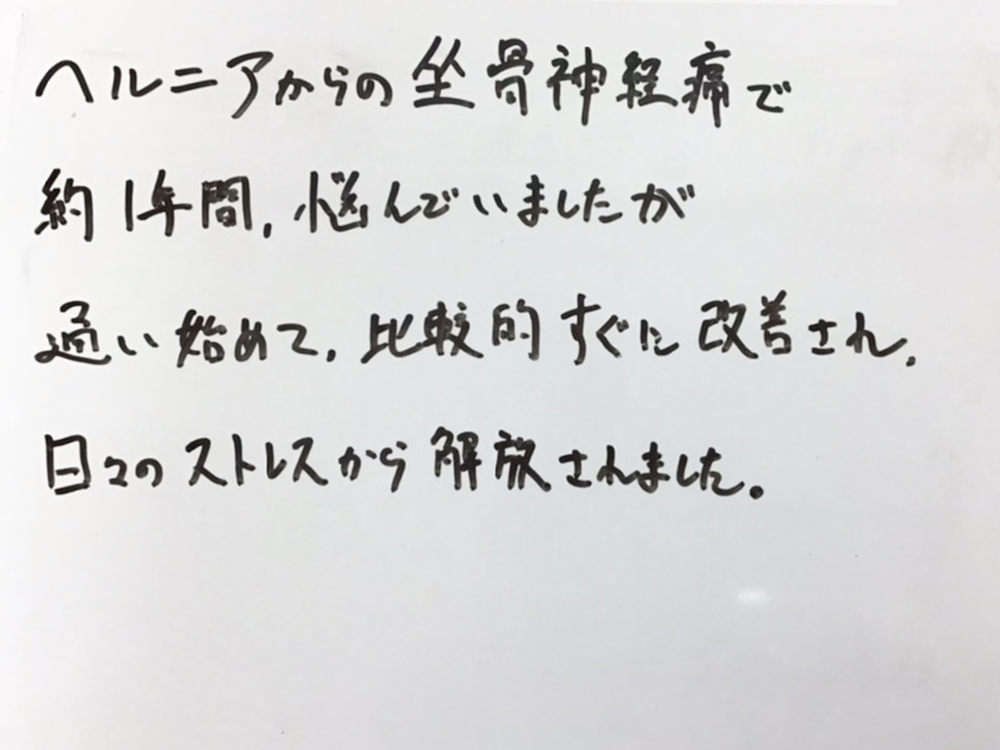 ヘルニアからの坐骨神経痛で
約1年間,悩んでいましたが
通い始めて,比較的すぐに改善され,
日々のストレスから解放されました。